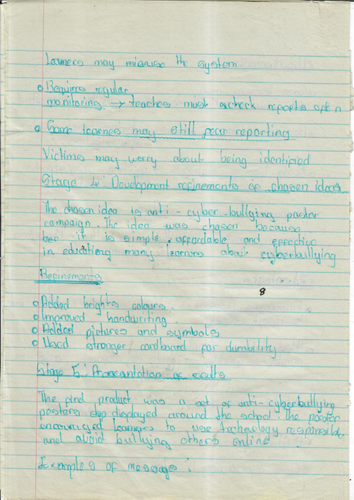 Learners may misuse the system
o Requires regular
monitoring → teachers must check reports often
o Some learners may still fear reporting
Victims may worry about being identified
Stage 4: Development refinements of chosen ideas
The chosen idea is anti-cyber-bullying poster
campaign. The idea was chosen because
it is simple, affordable and effective
in educating many learners about cyberbullying
Refinements
8
o Added brights colours.
o Improved handwriting
o Added pictures and symbols
o Used stronger cardboard for durability
Stage 5: Presentation of results
The final product was a set of anti-cyberbullying
posters displayed around the school. The poster
encouraged learners to use technology responsibly
and avoid bullying others online
Examples of message: